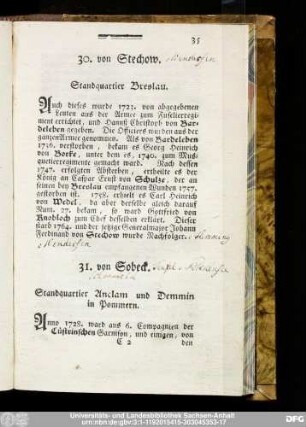 35
30. von Stechow.
Standquartier Breslau.
Auch dieses wurde 1723. von abgegebenen
Leuten aus der Armee zum Fuselierregi-
ment errichtet, und Hannß Christoph von Bar-
deleben gegeben. Die Officiers wurden aus der
ganzen Armee genommen. Als von Bardeleben
1736. verstorben, bekam es Georg Heinrich
von Borke, unter dem es, 1740. zum Mus-
quetierregimente gemacht ward. Nach dessen
1747. erfolgten Absterben, ertheilte es der
König an Caspar Ernst von Schulze, der an
seinen bey Breslau empfangenen Wunden 1757.
gestorben ist. 1758. erhielt es Carl Heinrich
von Wedel, da aber derselbe gleich darauf
Num. 27. bekam, so ward Gottfried von
Knobloch zum Chef desselben erklärt. Dieser
starb 1764. und der jetzige Generalmajor Johann
Ferdinand von Stechow wurde Nachfolger.
31. von Sobeck.
Standquartier Anclam und Demmin
in Pommern.
Anno 1728. ward aus 6. Compagnien der
Cüstrinschen Garnison, und einigen, von
C 2 den
Universitäts- und Landesbibliothek Sachsen-Anhalt
urn:nbn:de:gbv:3:1-1192015415-303045353-17